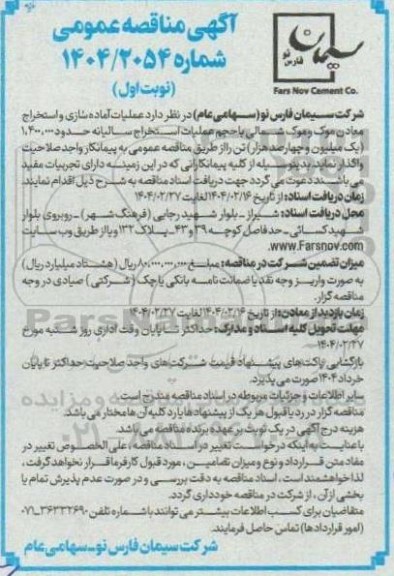 آگهی مناقصه عمومی
شماره ۱۴۰۴/۲۰۵۴
(نوبت اول)
سیمان فارس نو
Fars Nov Cement Co.
شرکت سیمان فارس نو (سهامی عام) در نظر دارد عملیات آماده سازی و استخراج
معادن موک و موک شمالی با حجم عملیات استخراج سالیانه حدود ۱,۴۰۰,۰۰۰
(یک میلیون و چهارصد هزار) تن را از طریق مناقصه عمومی به پیمانکار واجد صلاحیت
واگذار نماید. بدینوسیله از کلیه پیمانکارانی که در این زمینه دارای تجربیات مفید
می باشند دعوت می گردد جهت دریافت اسناد مناقصه به شرح ذیل اقدام نمایند.
زمان دریافت اسناد: از تاریخ ۱۴۰۴/۰۲/۱۶ لغایت ۱۴۰۴/۰۲/۲۷
محل دریافت اسناد: شیراز ـ بلوار شهید رجایی (فرهنگ شهر) ـ روبروی بلوار
شهید کسائی ـ حد فاصل کوچه ۳۹ و ۴۳ ـ پلاک ۱۳۲ و یا از طریق وب سایت
www.Farsnov.com
میزان تضمین شرکت در مناقصه: مبلغ ۸۰,۰۰۰,۰۰۰,۰۰۰ ریال (هشتاد میلیارد ریال)
به صورت واریز وجه نقد یا ضمانت نامه بانکی یا چک (شرکتی) صیادی در وجه
مناقصه گزار.
زمان بازدید از معادن: از تاریخ ۱۴۰۴/۰۲/۱۴ لغایت ۱۴۰۴/۰۲/۲۷
مهلت تحویل کلیه اسناد و مدارک: حداکثر تا پایان وقت اداری روز شنبه مورخ
۱۴۰۴/۰۲/۲۷
بازگشایی پاکت های پیشنهاد قیمت شرکت های واجد صلاحیت حداکثر تا پایان
خرداد ۱۴۰۴ صورت می پذیرد.
سایر اطلاعات و جزئیات مربوطه در اسناد مناقصه مندرج است.
مناقصه گزار در رد یا قبول هر یک از پیشنهادها یا رد کلیه آن ها مختار می باشد.
هزینه درج آگهی در یک نوبت بر عهده برنده مناقصه می باشد.
با عنایت به اینکه درخواست تغییر در اسناد مناقصه، علی الخصوص تغییر در
مفاد متن قرارداد و نوع و میزان تضامین، مورد قبول کارفرما قرار نخواهد گرفت،
لذا خواهشمند است، اسناد مناقصه به دقت بررسی و در صورت عدم پذیرش تمام یا
بخشی از آن، از شرکت در مناقصه خودداری گردد.
متقاضیان برای کسب اطلاعات بیشتر می توانند با شماره تلفن ۳۶۳۳۲۶۹۰-۰۷۱
(امور قراردادها) تماس حاصل فرمایند.
شرکت سیمان فارس نو ـ سهامی عام